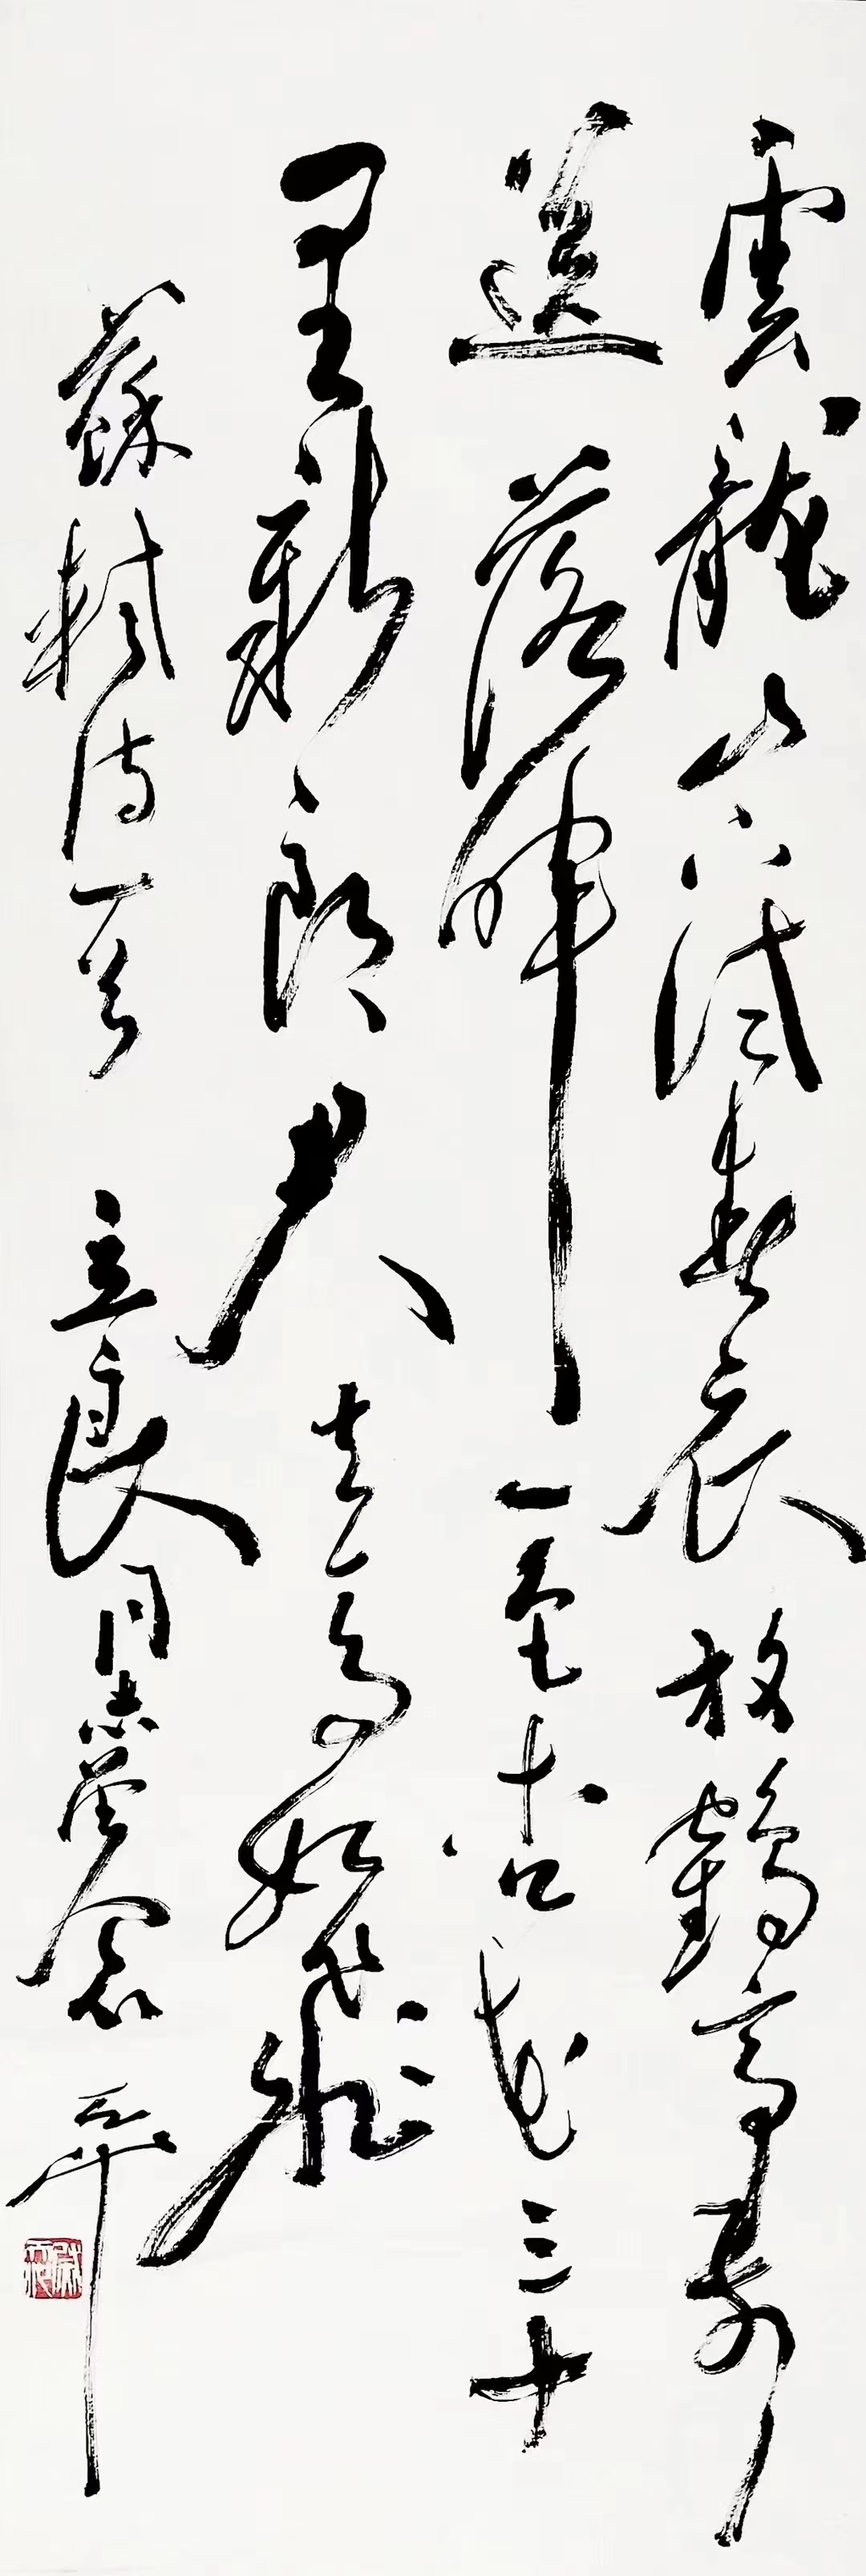 雲龍山下試春衣放鶴亭前
送落暉一色杏花三十
里新郎君去馬如飛
蘇軾詩一首 立良同志留念